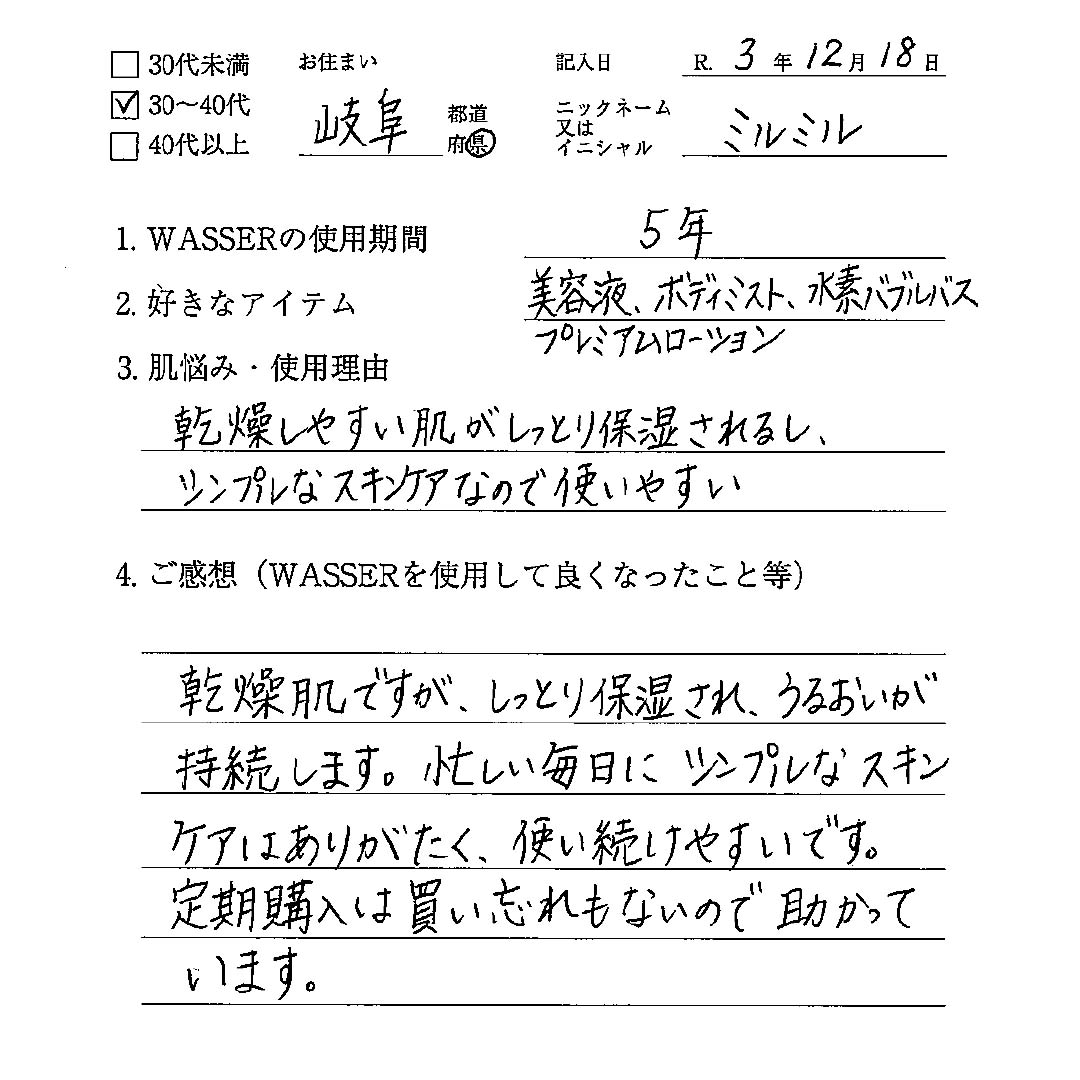 30代未満 お住まい 記入日 R. 3年12月18日
30〜40代 岐阜 都道府県 ニックネーム又はイニシャル ミルミル
40代以上
1. WASSERの使用期間 5年
2. 好きなアイテム 美容液、ボディミスト、水素バブルバス
プレミアムローション
3. 肌悩み・使用理由
乾燥しやすい肌がしっとり保湿されるし、
シンプルなスキンケアなので使いやすい
4. ご感想（WASSERを使用して良くなったこと等）
乾燥肌ですが、しっとり保湿され、うるおいが
持続します。忙しい毎日にシンプルなスキン
ケアはありがたく、使い続けやすいです。
定期購入は買い忘れもないので助かって
います。